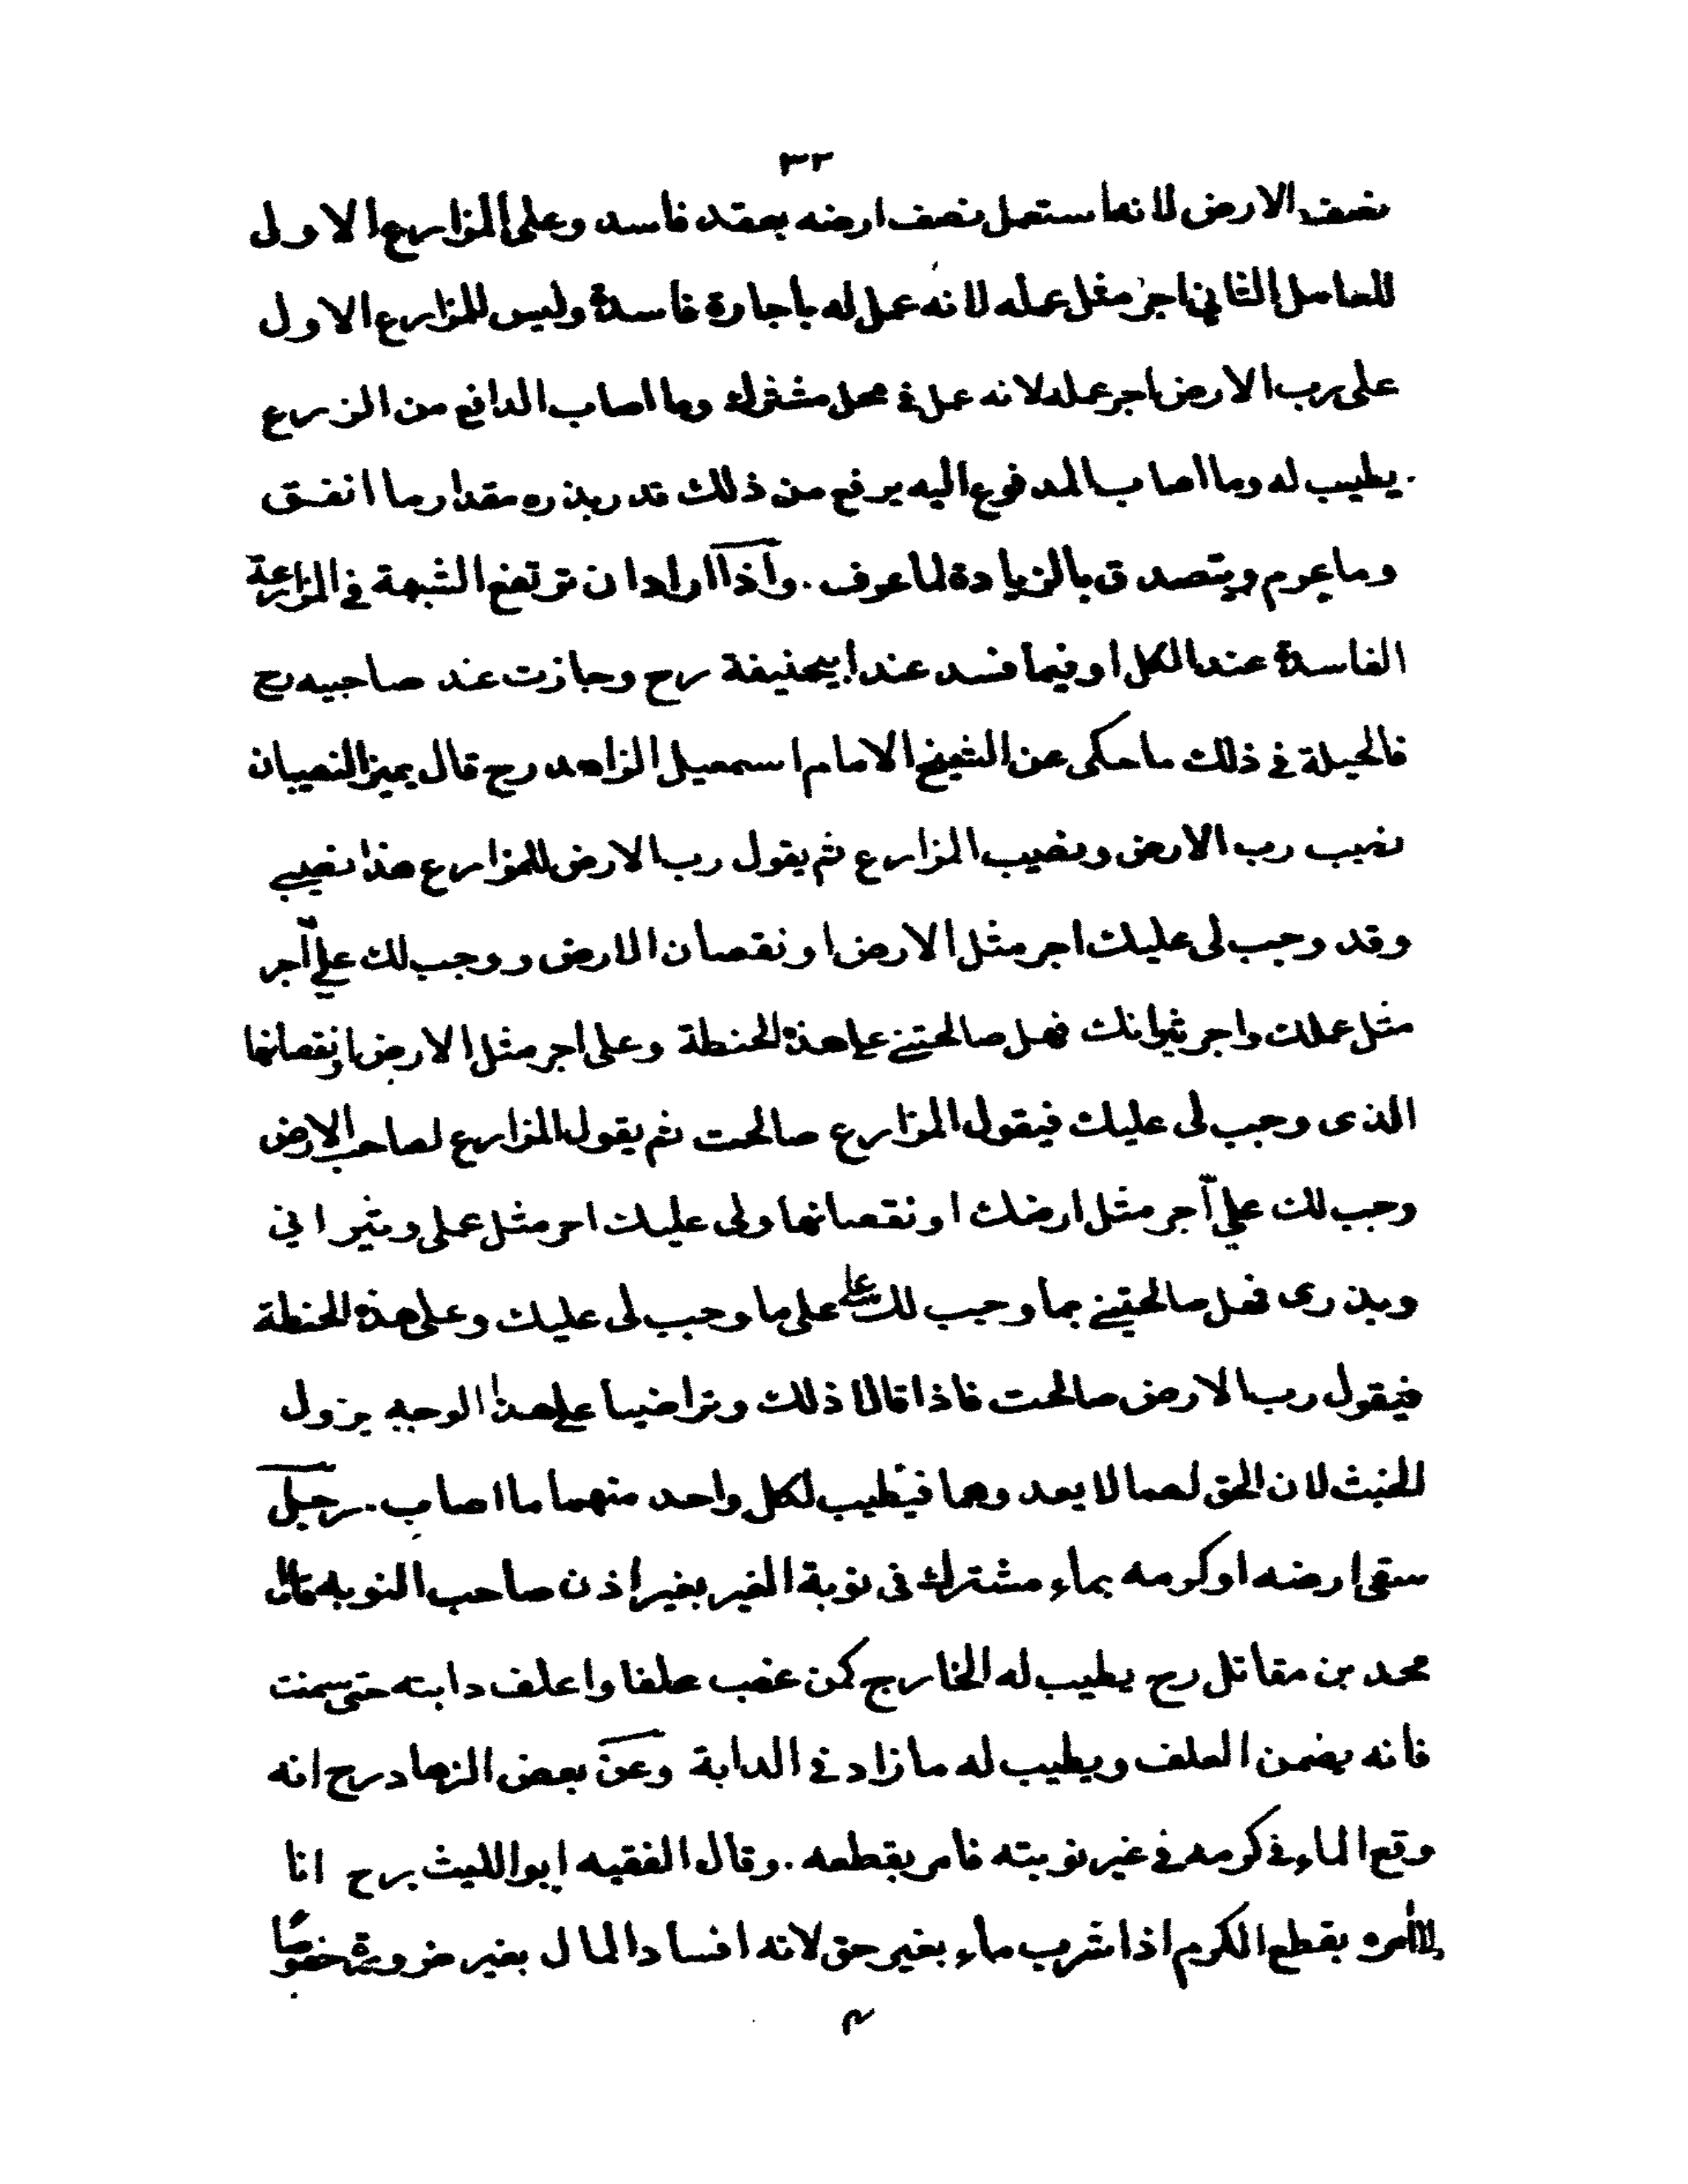 ٣٢
نصف الارض لانهما ستعمل نصف ارضه بعقد فاسد وعلى المزارع الاول
للعامل الثاني اجر مثل عمله لانه عمل له باجارة فاسدة وليس للمزارع الاول
على رب الارض اجر عمله لانه عمل في محل مشترك وما اصاب الدافع من الزرع
يطيب له وما اصاب المدفوع اليه يرفع من ذلك قدر بذره مقدار ما انفق
وما غرم ويتصدق بالزيادة لما عرف . واذا اراد ان ترتفع الشبهة في المزارعة
الفاسدة عند الكل او فيما فسد عند ابيحنيفة رح وجازت عند صاحبيه رح
فالحيلة في ذلك ما حكى عن الشيخ الامام اسمعيل الزاهد رح قال يميز النصيبان
نصيب رب الارض ونصيب المزارع ثم يقول رب الارض للمزارع هذا نصيبي
وقد وجب لى عليك اجر مثل الارض او نقصان الارض ووجب لك عليّ اجر
مثل عملك واجر ثيرانك فهل صالحتني على هذه الحنطة وعلى اجر مثل الارض او نقصانها
الذى وجب لى عليك فيقول المزارع صالحت ثم يقول المزارع لصاحب الارض
وجب لك عليّ اجر مثل ارضك او نقصانها ولى عليك اجر مثل عملى وثيرانى
وبذرى فهل صالحتني بما وجب لك علي على ما وجب لى عليك وعلى هذه الحنطة
فيقول رب الارض صالحت فاذا قالا ذلك وتراضيا على هذا الوجه يزول
الخبث لان الحق لهما لا يعدوهما فيطيب لكل واحد منهما ما اصاب . رجل
سقى ارضه او كرمه بماء مشترك فى نوبة الغير بغير اذن صاحب النوبه قال
محمد بن مقاتل رح يطيب له الخارج كمن غصب علفا واعلف دابته حتى سمنت
فانه يضمن العلف ويطيب له ما زاد في الدابة وعن بعض الزهاد رح انه
وقع الماء في كرمه في غير نوبته فامر بقطعه . وقال الفقيه ابو الليث رح انا
لا امره بقطع الكرم اذا شرب ماء بغير حق لانه افساد المال بغير ضرورة خصوصا